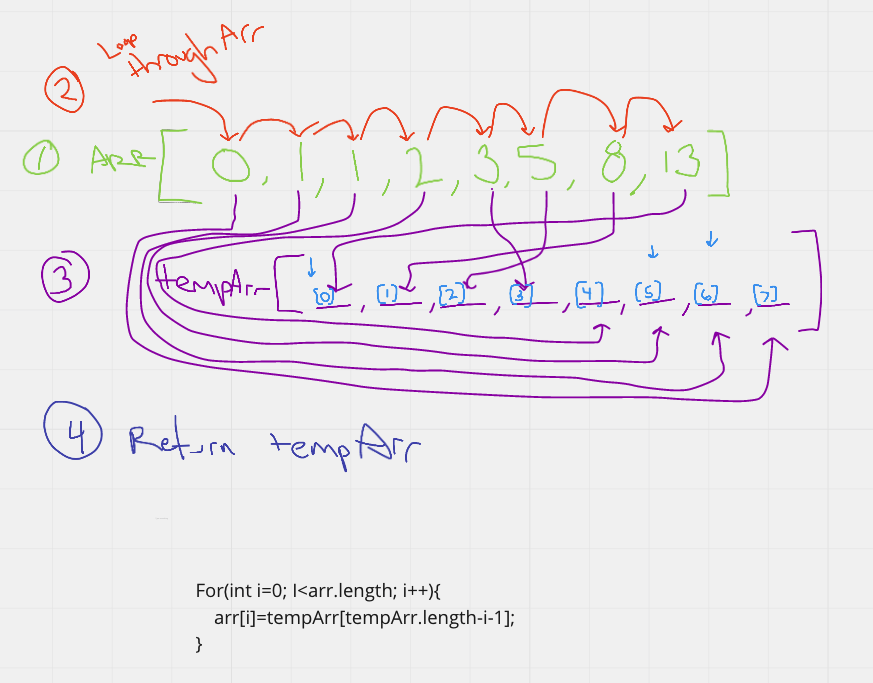 ② Loop through Arr
① Arr [ 0, 1, 1, 2, 3, 5, 8, 13 ]
③ tempArr [ [0], [1], [2], [3], [4], [5], [6], [7] ]
④ Return tempArr
For(int i=0; I<arr.length; i++){
arr[i]=tempArr[tempArr.length-i-1];
}